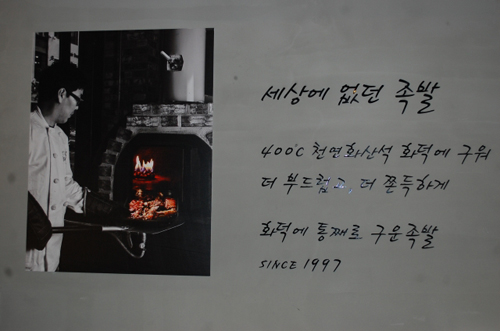 세상에 없던 족발
400℃ 천연화산석 화덕에 구워
더 부드럽고, 더 쫀득하게
화덕에 통째로 구운족발
SINCE 1997